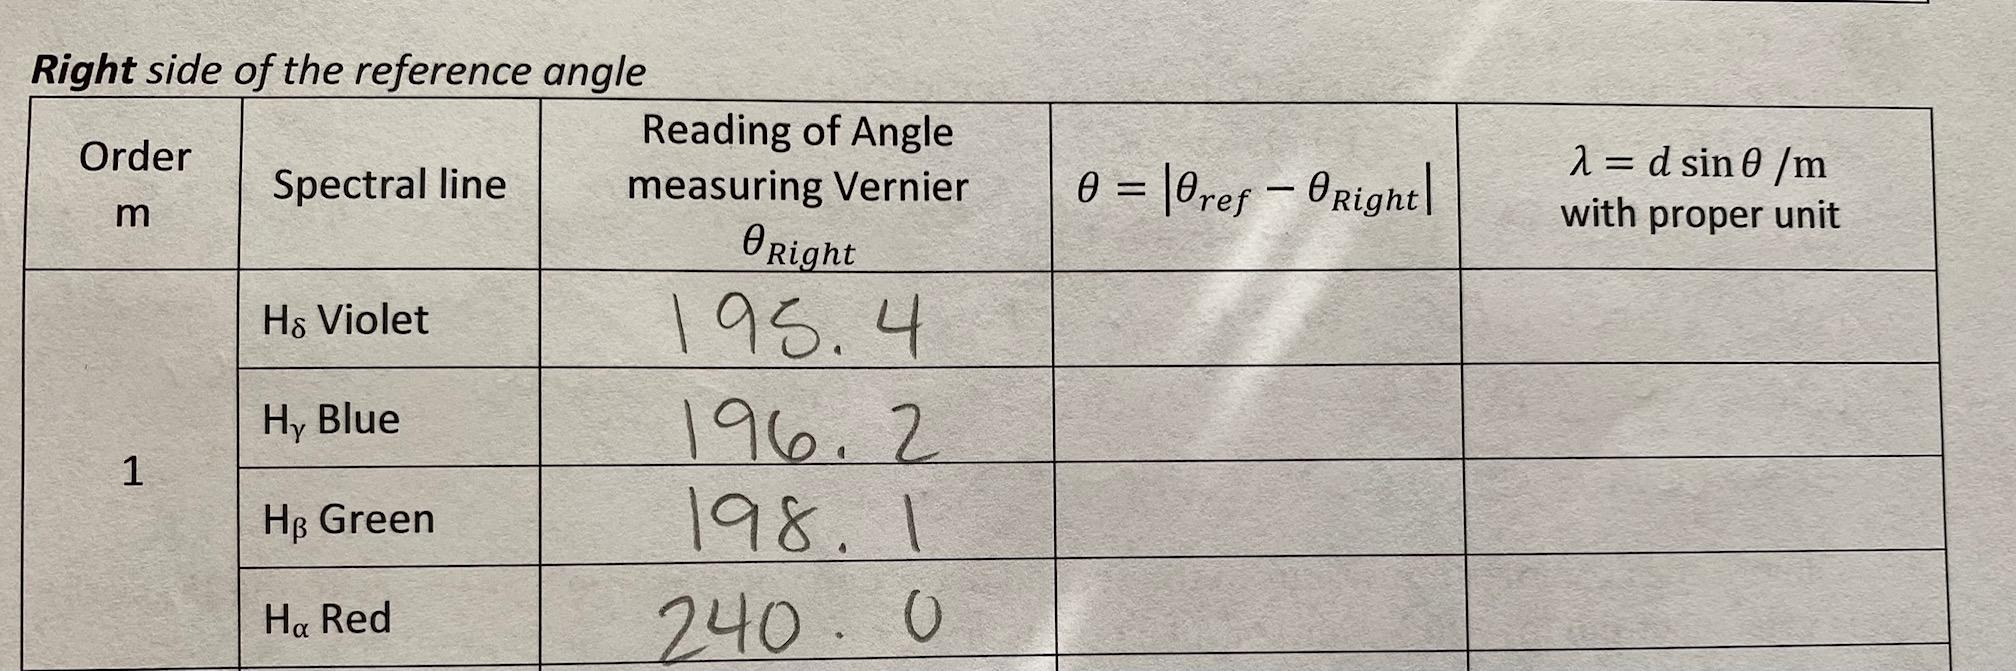 Right side of the reference angle
Order
m
Spectral line
Reading of Angle
measuring Vernier
θRight
θ = |θref − θRight|
λ = d sin θ /m
with proper unit
1
Hδ Violet
195.4
Hγ Blue
196.2
Hβ Green
198.1
Hα Red
240.0